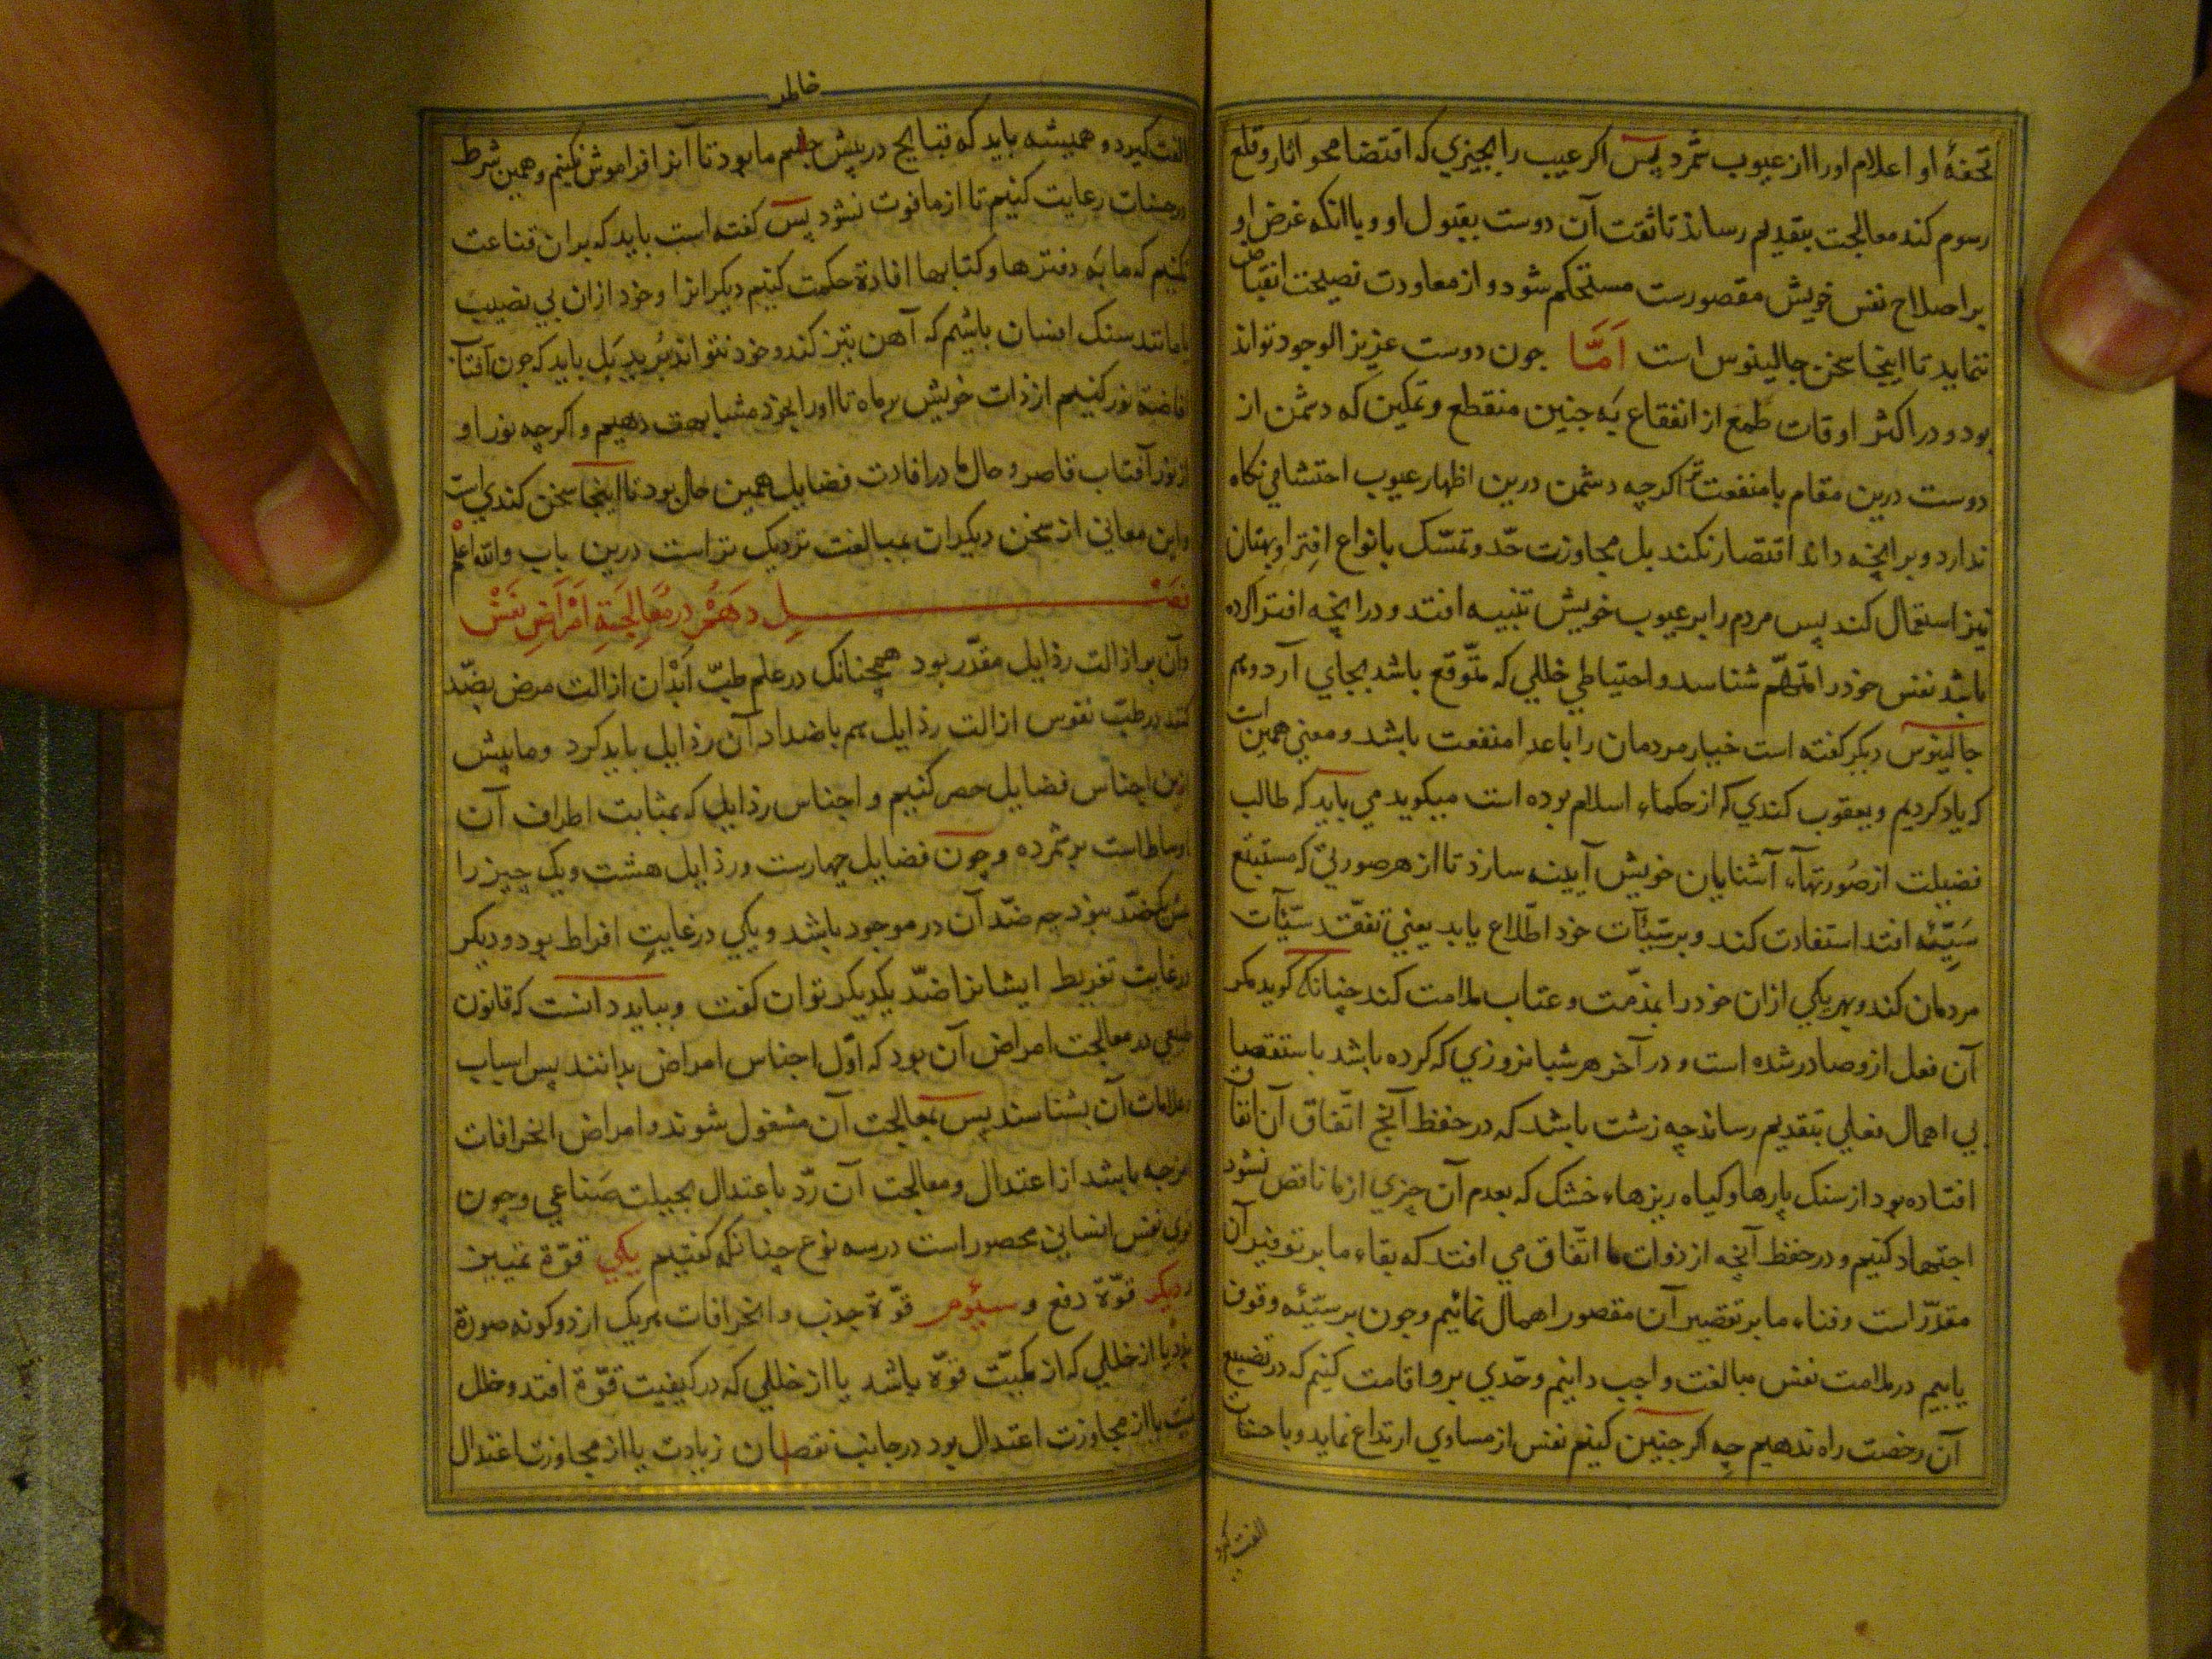 تحفهٔ او اعلام اورا از عیوب شمرد پس اکر عیب را بچیزی که اقتضا محو آثار و قلع
رسوم کند معالجت بتقدیم رساند تا ثقت آن دوست بقبول او و با انکه غرض او
بر اصلاح نفس خویش مقصورست مستحکم شود و از معاودت نصیحت انقباض
ننماید تا اینجا سخن جالینوس است اَمَّا جون دوست عزیز الوجود تواند
بود و در اکثر اوقات طمع از انفقاع به جنین منقطع و تمکین که دشمن از
دوست درین مقام بامنفعت تر اکرچه دشمن درین اظهار عیوب احتشامی نکاه
ندارد و بر انچه داند اقتصار نکند بل مجاوزت حدّ و تمسّک بانواع افترا و بهتان
نیز استعمال کند پس مردم را بر عیوب خویش تنبیه افتد و در انچه افترا کرده
باشد نفس خود را متهّم شناسد و احتیاطی خللی که متّوقع باشد بجای آرد و هم
جالینوس دیکر کفته است خیار مردمان را باعدا منفعت باشد و معنی همین است
که یاد کردیم و یعقوب کندی که از حکماء اسلام بوده است میکوید می باید که طالب
فضیلت از صُورتهآء آشنایان خویش آیینه سازد تا از هر صورتی که مستتبع
سَیّئه افتد استفادت کند و بر سیّئات خود اطّلاع یابد یعنی تفقّد سیّئات
مردمان کند و بهر یکی ازان خود را بمذمّت و عتاب ملامت کند چنانکه کوید مکر
آن فعل ازو صادر شده است و در آخر هر شبانروزی که کرده باشد باستقصا
بی اهمال فعلی بتقدیم رساند چه زشت باشد که در حفظ آنچ اتّفاق آن اتفاق
افتاده بود از سنک پارها و کیاه ریزهاء خشک که بعدم آن چیزی از ما ناقص نشود
اجتهاد کنیم و در حفظ آنچه از ذوات ما اتّفاق می افتد که بقاء ما بر توفیر آن
مقدّر است و فناء ما بر تقصیر آن مقصور اهمال نمائیم و جون بر سیّئه وقوف
یابیم در ملامت نفس مبالغت واجب دانیم و حدّی برو اقامت کنیم که در تضییع
آن رخصت راه ندهیم چه اکر جنین کنیم نفس از مساوی ارتداع نماید و با حسنات
الفت کیرد
خالمر
الفت کیرد و همیشه باید که قبایح در پیش جشم ما بود تا آنرا فراموش نکنیم و همین شرط
در حسنات رعایت کنیم تا از ما فوت نشود پس کفته است باید که بر ان قناعت
نکنیم که ما به دفترها و کتابها افادة حکمت کنیم دیکرانرا و خود ازان بی نصیب
یا مانند سنک افسان باشیم که آهن تیز کند و خود نتواند بُرید بَل باید که جون آفتاب
افاضهٔ نور کنیم از ذات خویش بر ماه تا اورا بخود مشابهت دهیم و اکرچه نور او
از نور آفتاب قاصر و حال ما در افادت فضایل همین حال بود تا اینجا سخن کندی است
و این معانی از سخن دیکران بمبالغت نزدیک تر است درین باب والله اعلم
فصـــل دهم در معالجة امراض نفس
و آن بر ازالت رذایل مقدّر بود همچنانک در علم طبّ ابدان ازالت مرض بضدّ
کنند در طبّ نفوس ازالت رذایل هم باضداد آن رذایل باید کرد و ما پیش
ازین اجناس فضایل حصر کنیم و اجناس رذایل که بمثابت اطراف آن
اوساط است بر شمرده و جون فضایل چهارست و رذایل هشت و یک چیز را
بیش یک ضدّ نبود چه ضدّ آن در موجود باشد و یکی در غایتِ افراط بود و دیکر
در غایت تفریط ایشانرا ضدّ یکدیکر توان کفت و بباید دانست که قانون
صناعی در معالجت امراض آن بود که اوّل اجناس امراض بدانند پس اسباب
و علامات آن بشناسند پس بمعالجت آن مشغول شوند و امراض انحرافات
امزجه باشد از اعتدال و معالجت آن ردّ باعتدال بحیلت صناعی و جون
قوی نفس انسانی محصور است در سه نوع چنانکه کفتیم یکی قوّة تمییز
و دیکر قوّة دفع و سیوم قوّة جذب و انحرافات هر یک از دو کونه صورة
بندد یا از خللی که از کمیّت قوّة باشد یا از خللی که در کیفیت قوّة افتد و خلل
کمیت یا از مجاوزت اعتدال بود در جانب نقصان زیادت یا از مجاوزت اعتدال